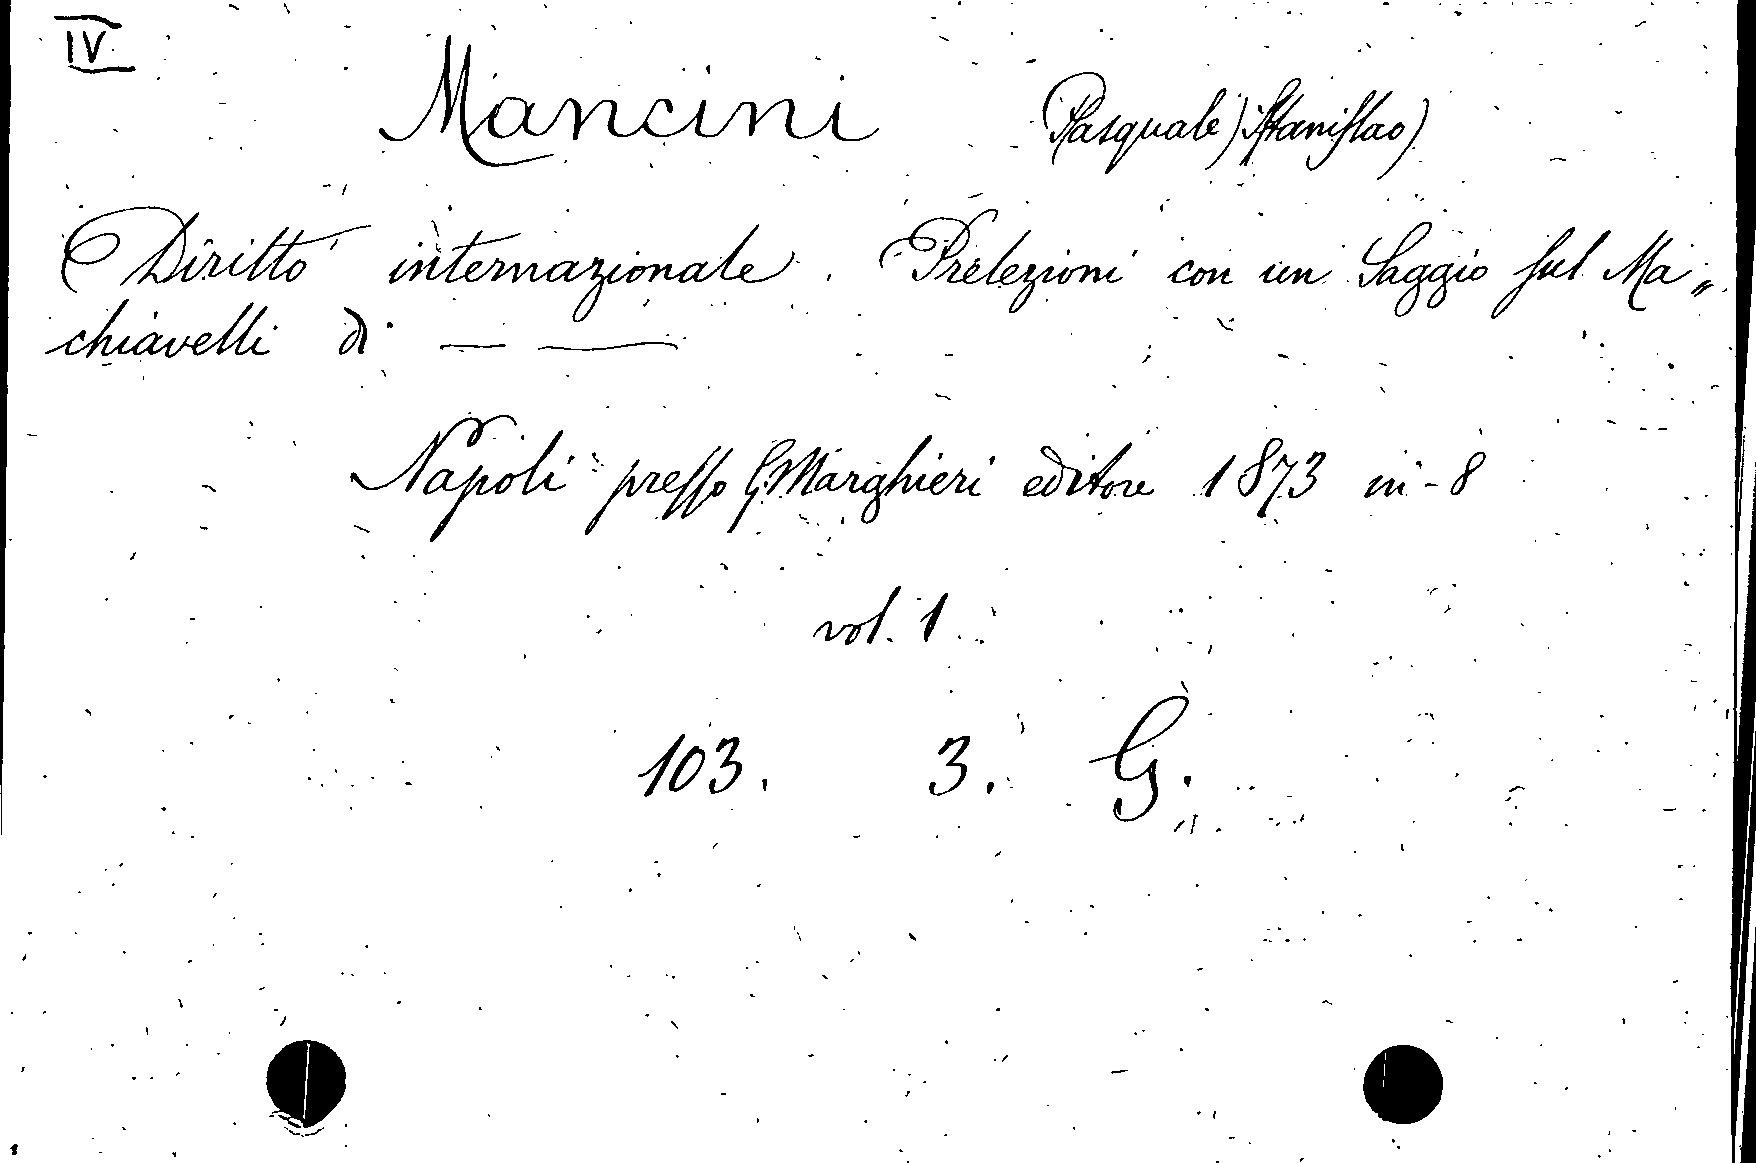 IV
Mancini (Pasquale) Stanislao)
Diritto internazionale. Prelezioni con un Saggio sul Ma„
chiavelli di — —
Napoli presso G. Marghieri editore 1873 in-8
vol. 1
103. 3. G.